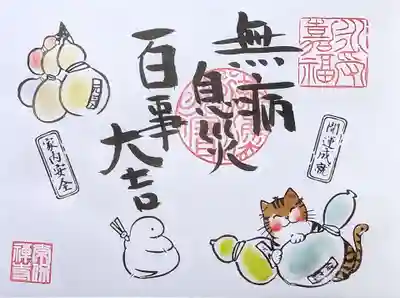 永受
嘉福
無病
息災
百事
大吉
開運成就
家内安全